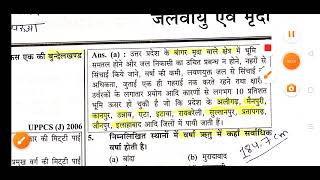 जलवायु एवं मृदा
कस एक की बुन्देलखण्ड
UPPCS (J) 2006
की मिट्टी पाई
प्रमुख वर्ग की मिट्टी
Ans. (a) : उत्तर प्रदेश के बांगर मृदा वाले क्षेत्र में भूमि
समतल होने और जल निकासी का उचित प्रबन्ध न होने, नहरों से
सिंचाई किये जाने, वर्षा की कमी, लवणयुक्त जल से सिंचाई की
अधिकता, जुताई एक ही गहराई तक करते रहने तथा क्षारीय
उर्वरकों के लगातार प्रयोग आदि कारणों से लगभग 10 प्रतिशत
भूमि ऊसर हो चुकी है जो कि प्रदेश के अलीगढ़, मैनपुरी,
कानपुर, उन्नाव, एटा, इटावा, रायबरेली, सुल्तानपुर, प्रतापगढ़,
जौनपुर, इलाहाबाद आदि जिलों में पायी जाती है।
5. निम्नलिखित स्थानों में वर्षा ऋतु में कहाँ सर्वाधिक
वर्षा होती है।
(a) बांदा (b) मुरादाबाद
184.7 cm